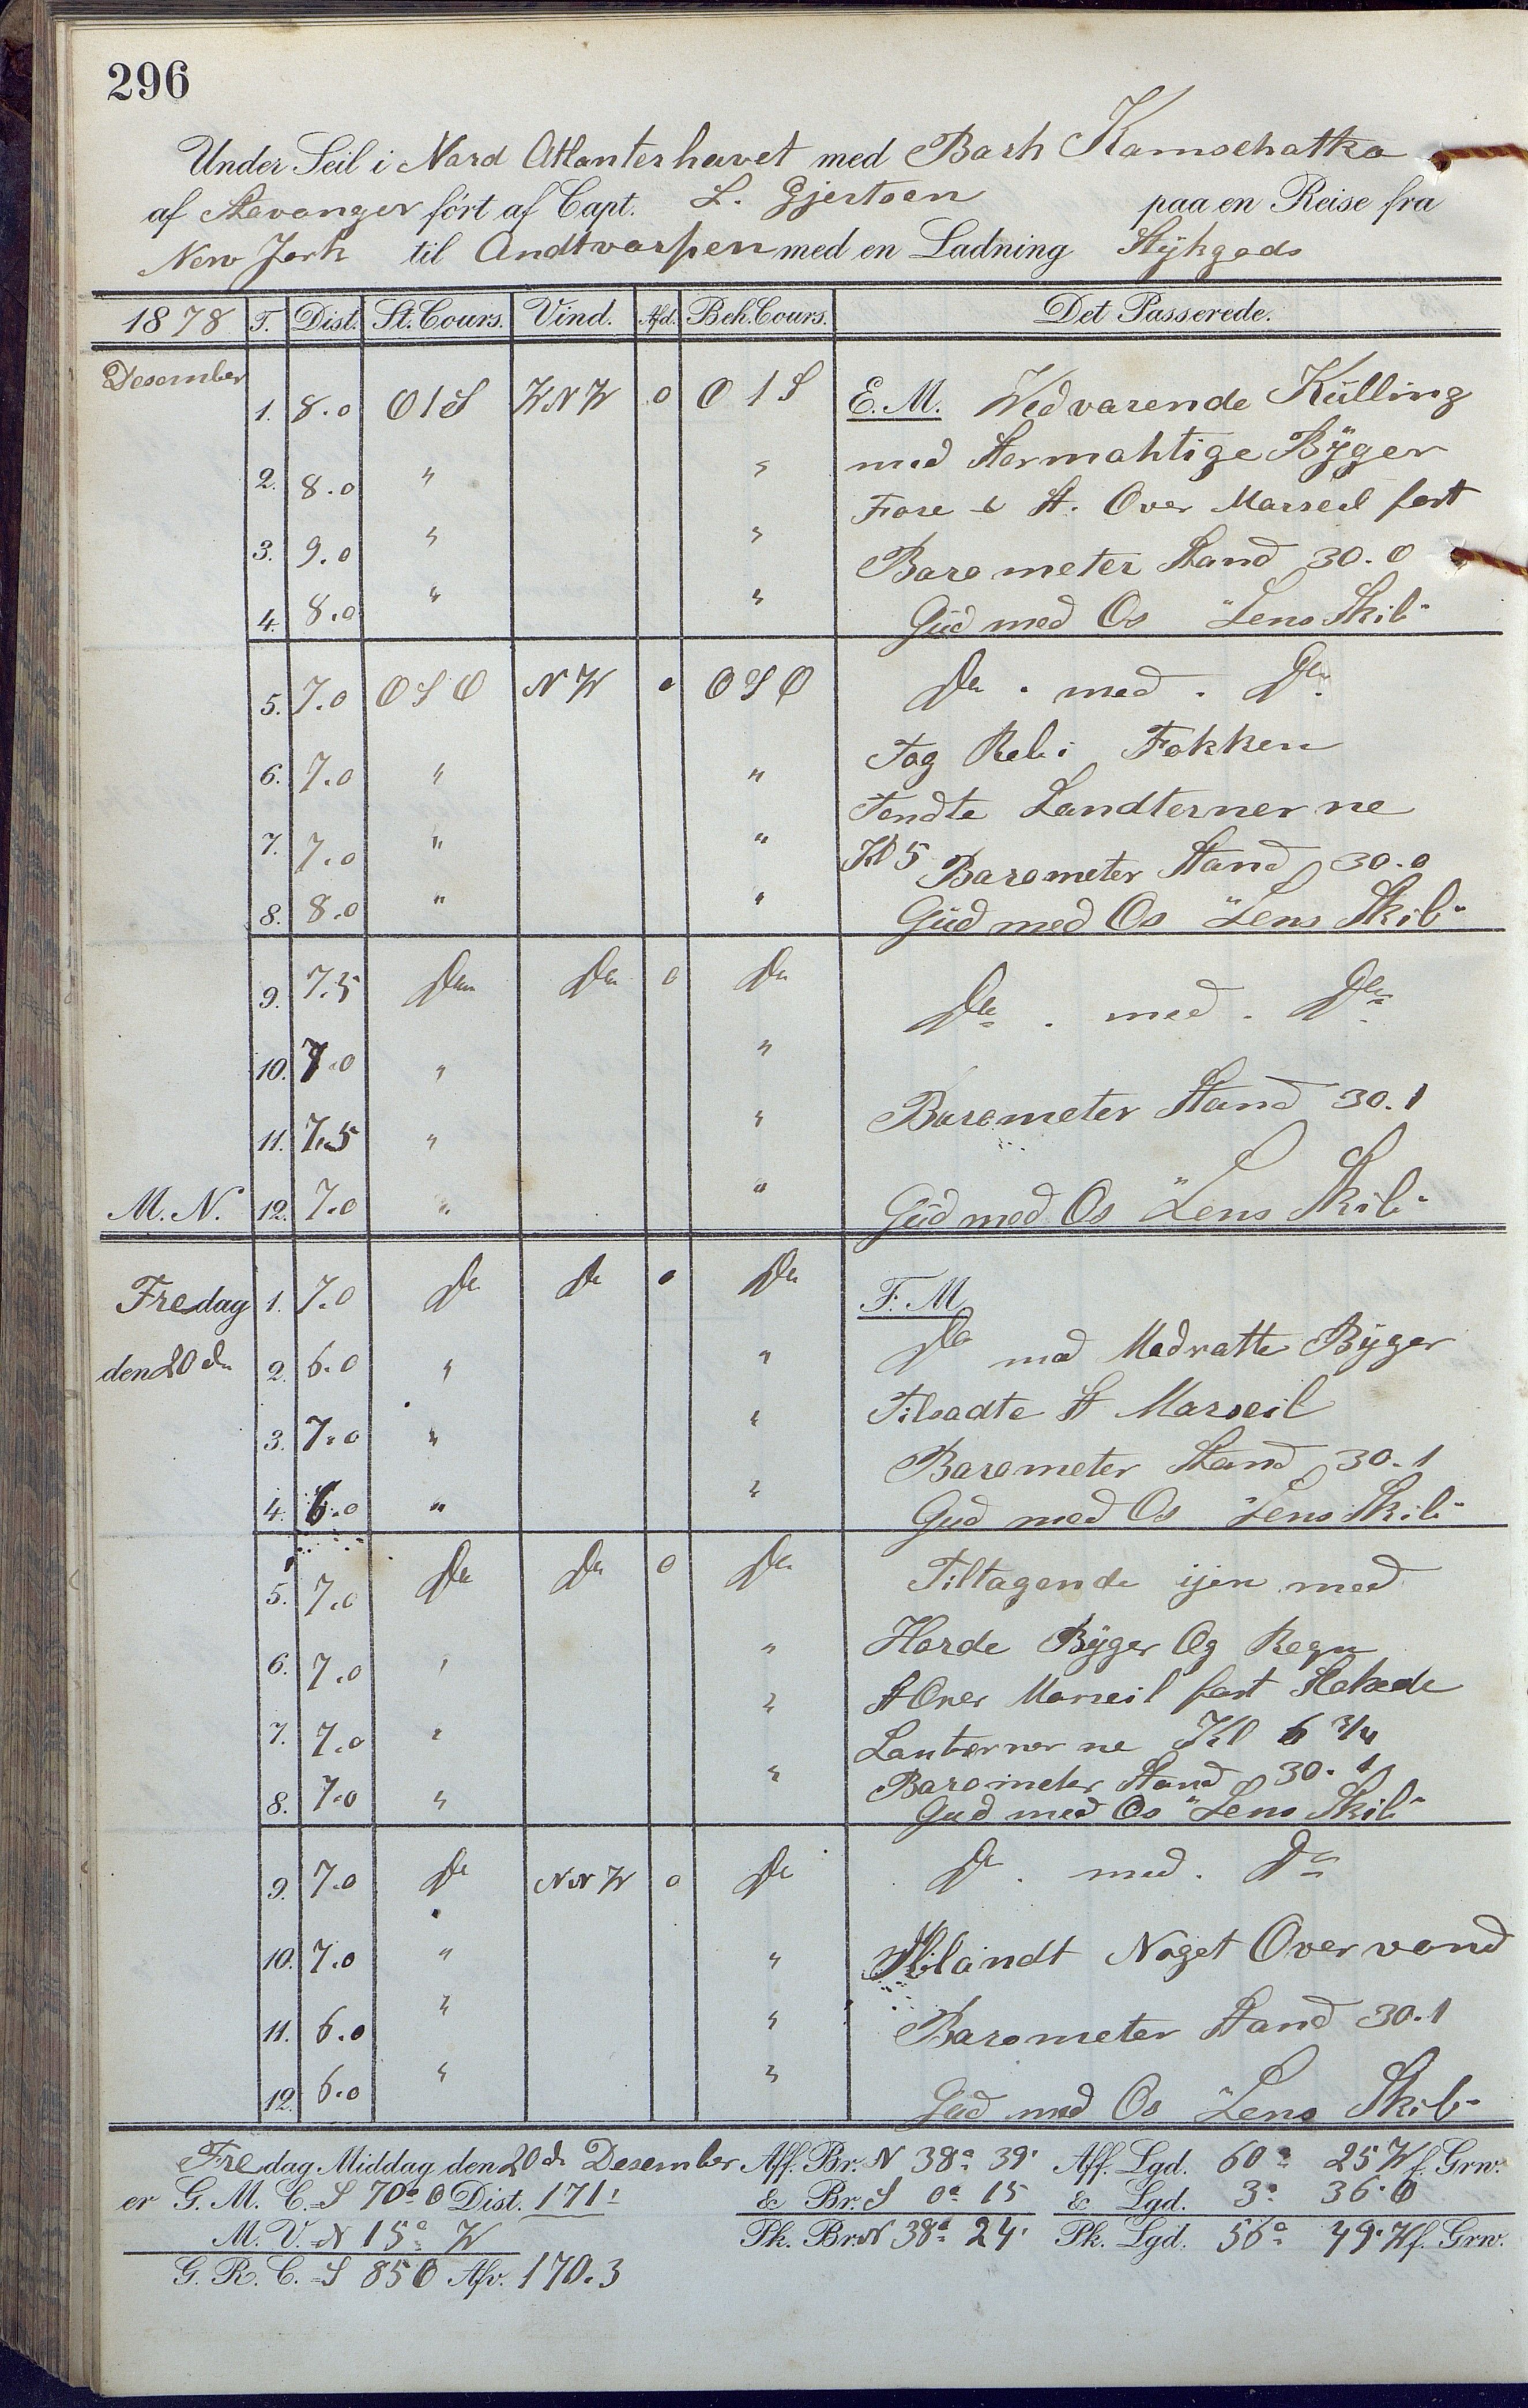 296
Under Seil i Nord Atlanterhavet med Bark Kamschatka
af Stavanger fört af Capt. L. Gjertsen paa en Reise fra
New York til Andtvarpen med en Ladning Stÿkgods
1878 T. Dist. St. Cours. Vind. Afd. Beh. Cours. Det Passerede.
Desember
1. 8.0 O 1 S WNW 0 O 1 S E. M. Vedvarende Külling
2. 8.0 " " med Stormahtige Bÿger
Fore & St. Over Marseil fast
3. 9.0 " " Barometer Stand 30.0
4. 8.0 " " Güd med Os "Lens Skib"
5. 7.0 O S O N W 0 O S O Do . med . Do
6. 7.0 " " Tog Reb i Fokken
Tendte Landternerne
7. 7.0 " " Kl 5 Barometer Stand 30.0
8. 8.0 " " Güd med Os "Lens Skib"
9. 7.5 Do Do 0 Do Do . med . Do
10. 7.0 " "
11. 7.5 " " Barometer Stand 30.1
M. N. 12. 7.0 " " Güd med Os "Lens Skib"
Fredag 1. 7.0 Do Do 0 Do F. M.
den 20 de 2. 6.0 " " Do med Modratte Bÿger
Tilsadte St Marseil
3. 7.0 " " Barometer Stand 30.1
4. 6.0 " " Gud med Os "Lens Skib"
5. 7.0 Do Do 0 Do Tiltagende ijen med
6. 7.0 " " Horde Bÿger Og Regn
St Over Marseil fast Slokede
7. 7.0 " " Lanternerne Kl 6 3/4
Barometer Stand 30.1
8. 7.0 " " Gud med Os "Lens Skib"
9. 7.0 Do NNW 0 Do Do . med . Do
10. 7.0 " " Iblandt Noget Overvand
11. 6.0 " " Barometer Stand 30.1
12. 6.0 " " Gud med Os "Lens Skib"
Fredag Middag den 20 de Desember Aff. Br. N 38° 39' Aff. Lgd. 60° 25 W f. Grw.
er G. M. C. S 70° O Dist. 171' & Br. S 0° 15 & Lgd. 3° 36' O
M. V. N 15° W Pk. Br. N 38° 24' Pk. Lgd. 56° 49' W f. Grw.
G. R. C. S 85 O Afv. 170.3